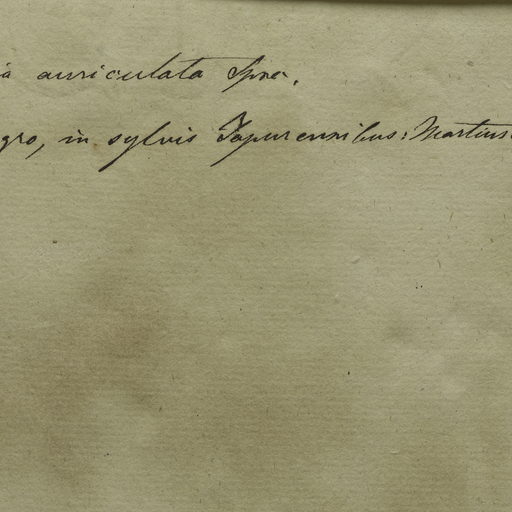 ia auriculata Spre.
gro, in sylvis Japurensibus: Martius